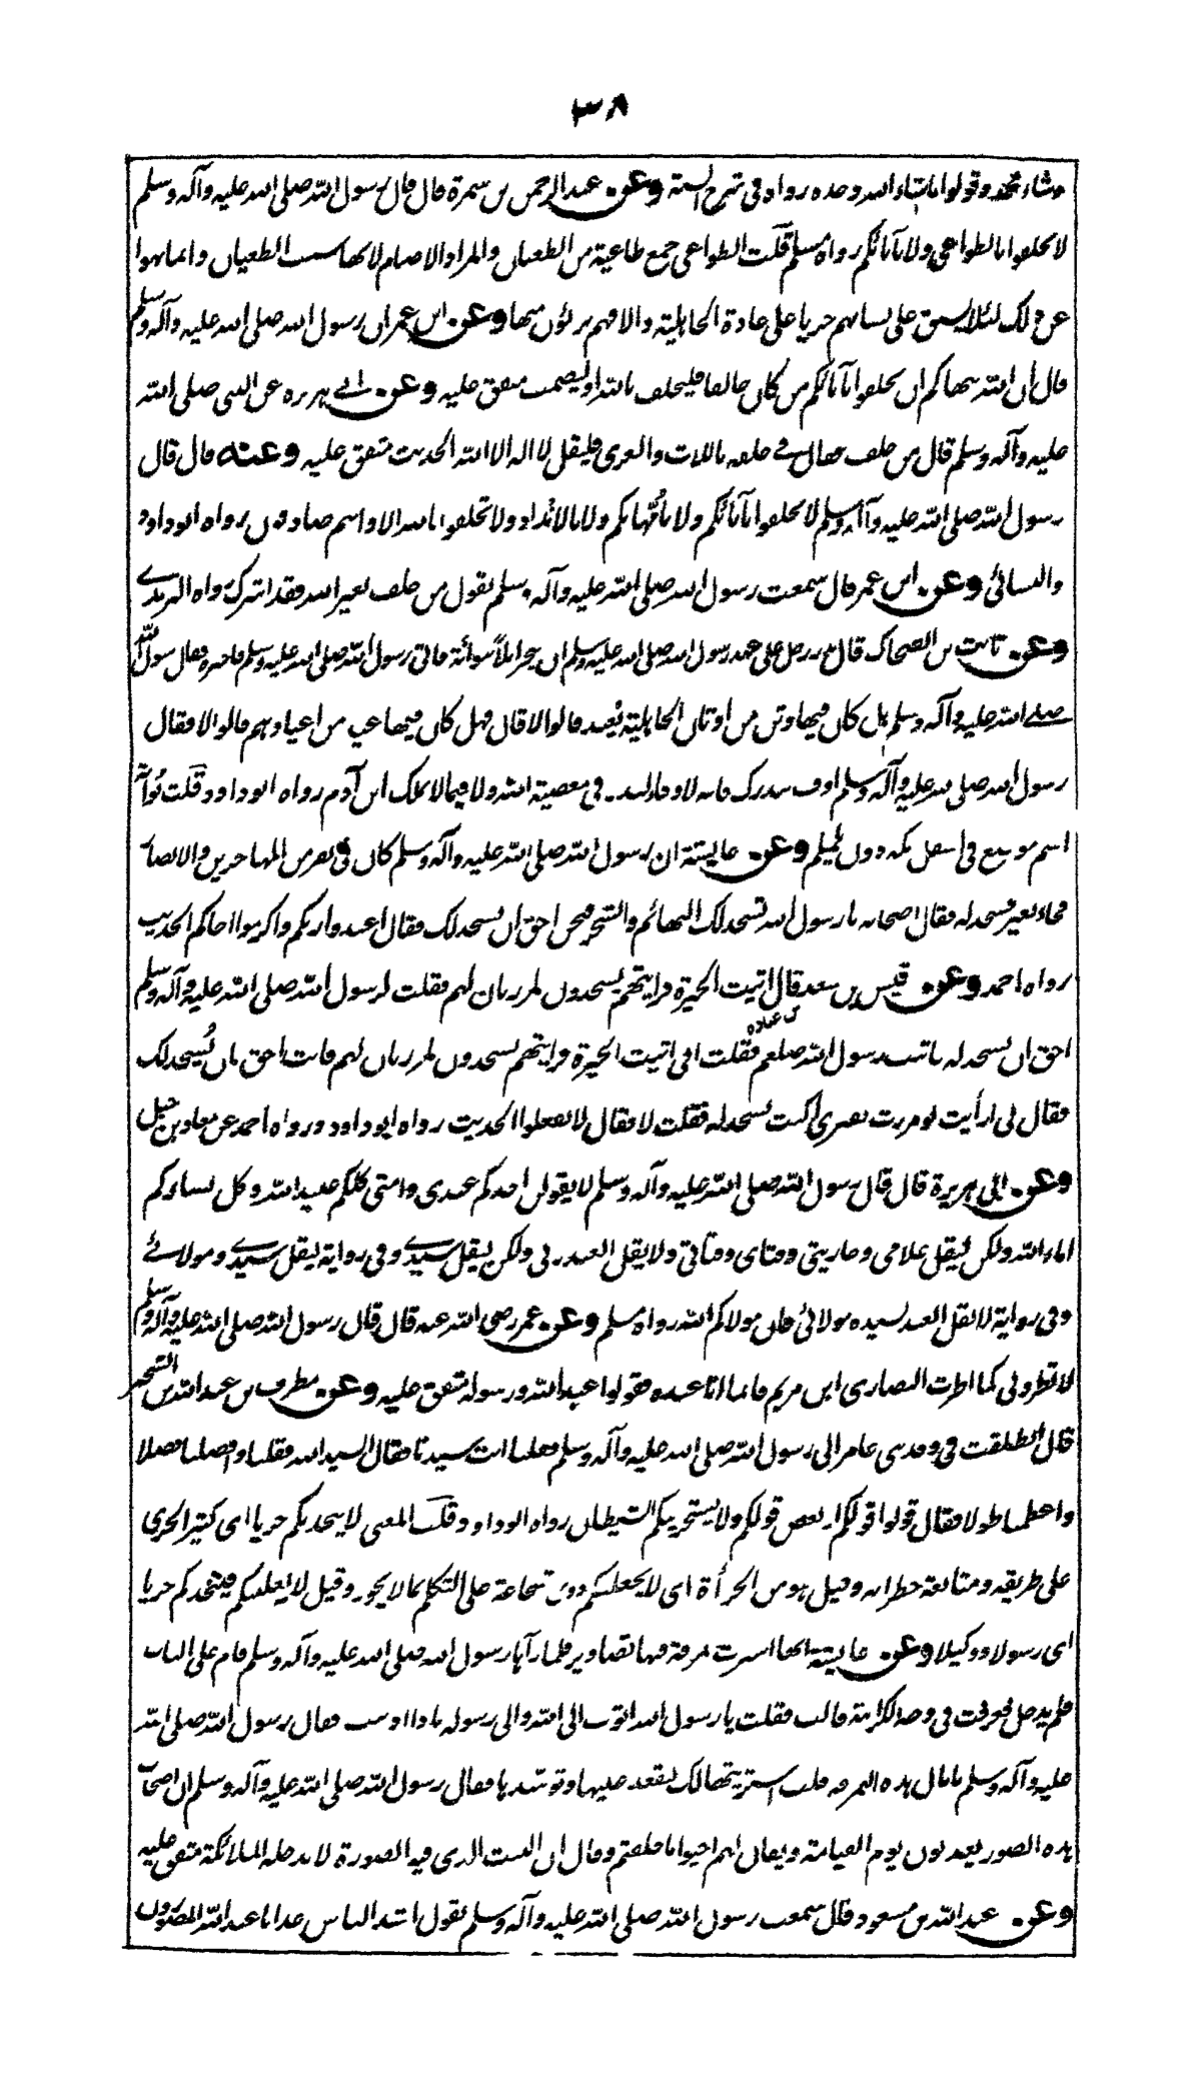 ٣٨
وشاء محمد وقولوا ما شاء الله وحده رواه في شرح السنة وعن عبد الرحمن بن سمرة قال قال رسول الله صلى الله عليه وآله وسلم
لا تحلفوا بالطواغي ولا بآبائكم رواه مسلم قلت الطواغي جمع طاغية من الطغيان والمراد الاصنام لانها سبب الطغيان وانما نهوا
عن ذلك لئلا يسبق على لسانهم جريا على عادة الجاهلية والا فهم برئون منها وعن ابن عمر ان رسول الله صلى الله عليه وآله وسلم
قال ان الله ينهاكم ان تحلفوا بآبائكم من كان حالفا فليحلف بالله او ليصمت متفق عليه وعن ابي هريرة عن النبي صلى الله
عليه وآله وسلم قال من حلف فقال في حلفه باللات والعزى فليقل لا اله الا الله الحديث متفق عليه وعنه قال قال
رسول الله صلى الله عليه وآله وسلم لا تحلفوا بآبائكم ولا بأمهاتكم ولا بالانداد ولا تحلفوا بالله الا وانتم صادقون رواه ابو داود
والنسائي وعن ابن عمر قال سمعت رسول الله صلى الله عليه وآله وسلم يقول من حلف بغير الله فقد اشرك رواه الترمذي
وعن ثابت بن الضحاك قال نذر رجل على عهد رسول الله صلى الله عليه وسلم ان ينحر ابلاً ببوانة فاتى رسول الله صلى الله عليه وسلم فاخبره فقال رسول الله
صلى الله عليه وآله وسلم هل كان فيها وثن من اوثان الجاهلية يُعبد قالوا لا قال فهل كان فيها عيد من اعيادهم قالوا لا فقال
رسول الله صلى الله عليه وآله وسلم اوف بنذرك فانه لا وفاء لنذر في معصية الله ولا فيما لا يملك ابن آدم رواه ابو داود قلت بُوانة
اسم موضع في اسفل مكة دون يلملم وعن عايشة ان رسول الله صلى الله عليه وآله وسلم كان في نفر من المهاجرين والانصار
فجاء بعير فسجد له فقال اصحابه يا رسول الله تسجد لك البهائم والشجر فنحن احق ان نسجد لك فقال اعبدوا ربكم واكرموا اخاكم الحديث
رواه احمد وعن قيس بن سعد قال اتيت الحيرة فرايتهم يسجدون لمرزبان لهم فقلت لرسول الله صلى الله عليه وآله وسلم
بن عبادة
احق ان يسجد له فاتيت رسول الله صلعم فقلت اني اتيت الحيرة فرايتهم يسجدون لمرزبان لهم فانت احق بان يُسجد لك
فقال لي ارأيت لو مررت بقبري اكنت تسجد له فقلت لا فقال لا تفعلوا الحديث رواه ابو داود ورواه احمد عن معاذ بن جبل
وعن ابي هريرة قال قال رسول الله صلى الله عليه وآله وسلم لا يقولن احدكم عبدي وامتي كلكم عبيد الله وكل نساؤكم
اماء الله ولكن ليقل غلامي وجاريتي وفتاي وفتاتي ولا يقل العبد ربي ولكن ليقل سيدي وفي رواية ليقل سيدي ومولائي
وفي رواية لا يقل العبد لسيده مولائي فان مولاكم الله رواه مسلم وعن عمر رضي الله عنه قال قال رسول الله صلى الله عليه وآله وسلم
لا تطروني كما اطرت النصارى ابن مريم فانما انا عبده فقولوا عبد الله ورسوله متفق عليه وعن مطرف بن عبد الله بن الشخير
قال انطلقت في وفد بني عامر الى رسول الله صلى الله عليه وآله وسلم فقلنا انت سيدنا فقال السيد الله فقلنا وافضلنا فضلا
واعظمنا طولا فقال قولوا قولكم او بعض قولكم ولا يستجرينكم الشيطان رواه ابو داود وقلت المعنى لا يتخذنكم جريا اى كثير الجرى
على طريقه ومتابعة خطراته وقيل هو من الجرأة اى لا يجعلنكم ذوي شجاعة على التكلم بما لا يجوز وقيل لا يغلبنكم فيتخذكم جريا
اى رسولا ووكيلا وعن عايشة انها اشترت نمرقة فيها تصاوير فلما رآها رسول الله صلى الله عليه وآله وسلم قام على الباب
فلم يدخل فعرفت في وجهه الكراهة قالت فقلت يا رسول الله اتوب الى الله والى رسوله ماذا اذنبت فقال رسول الله صلى الله
عليه وآله وسلم ما بال هذه النمرقة قلت اشتريتها لك لتقعد عليها وتوسدها فقال رسول الله صلى الله عليه وآله وسلم ان اصحاب
هذه الصور يعذبون يوم القيامة ويقال لهم احيوا ما خلقتم وقال ان البيت الذي فيه الصورة لا يدخله الملائكة متفق عليه
وعن عبد الله بن مسعود قال سمعت رسول الله صلى الله عليه وآله وسلم يقول اشد الناس عذابا عند الله المصورون